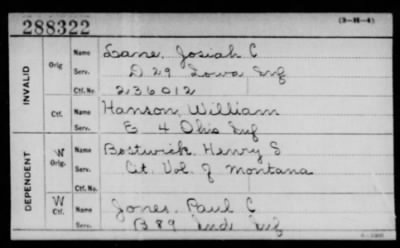 288322
(3—H—4)
INVALID
Orig Name Lane, Josiah C
Serv. D 29 Iowa Inf
Ctf. No. 236012
Ctf. Name Hanson, William
Serv. E 4 Ohio Inf
DEPENDENT
W Orig. Name Bostwick, Henry S
Serv. Cit. Vol. of Montana
Ctf. No.
W Ctf. Name Jones, Paul C
Serv. B 89 Ind Inf